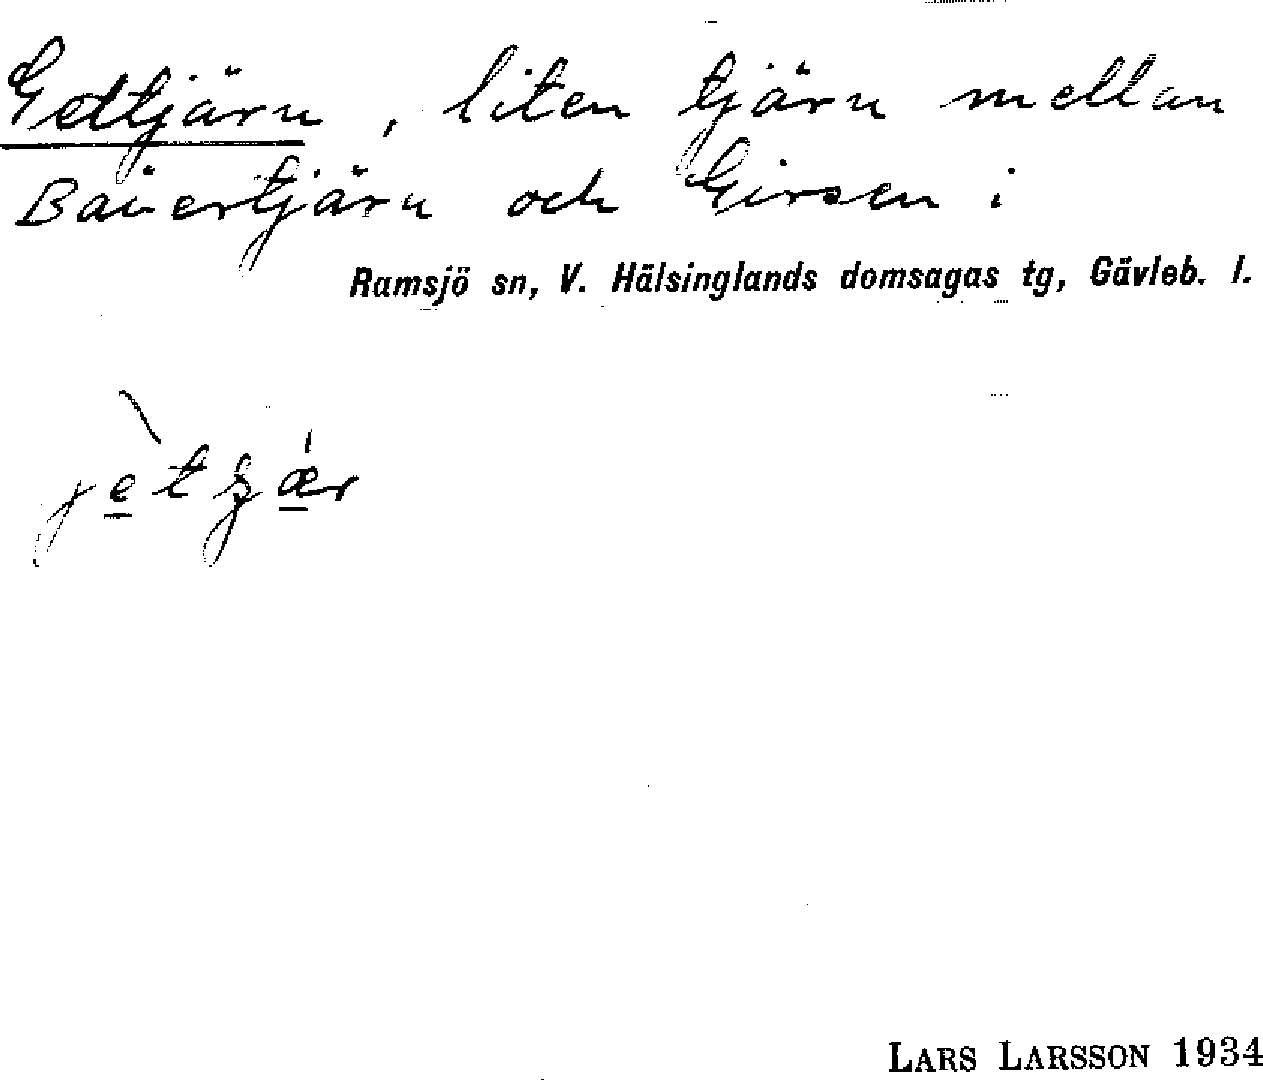 Gettjärn, liten tjärn mellan
Bauertjärn och Girsen i
Ramsjö sn, V. Hälsinglands domsagas tg, Gävleb. l.
LARS LARSSON 1934